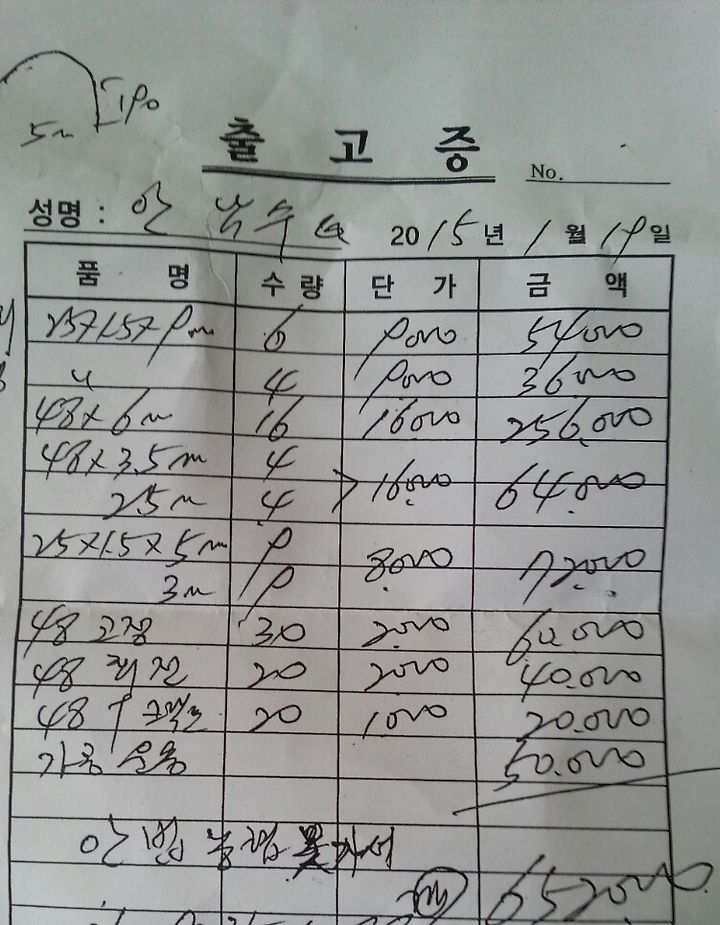 5m
출고증
No.
성명 : 안 2015년 1월 19일
품명 수량 단가 금액
25×1.5×9m 6 9000 54000
〃 4 9000 36000
48×6m 16 16000 256,000
48×3.5m 4
2.5m 4 > 16000 64,000
25×1.5×5m 9
3m 9 8000 72000
48 고정 30 2000 60,000
48 회전 20 2000 40,000
48 20 1000 20,000
가공 운용 50,000
652000